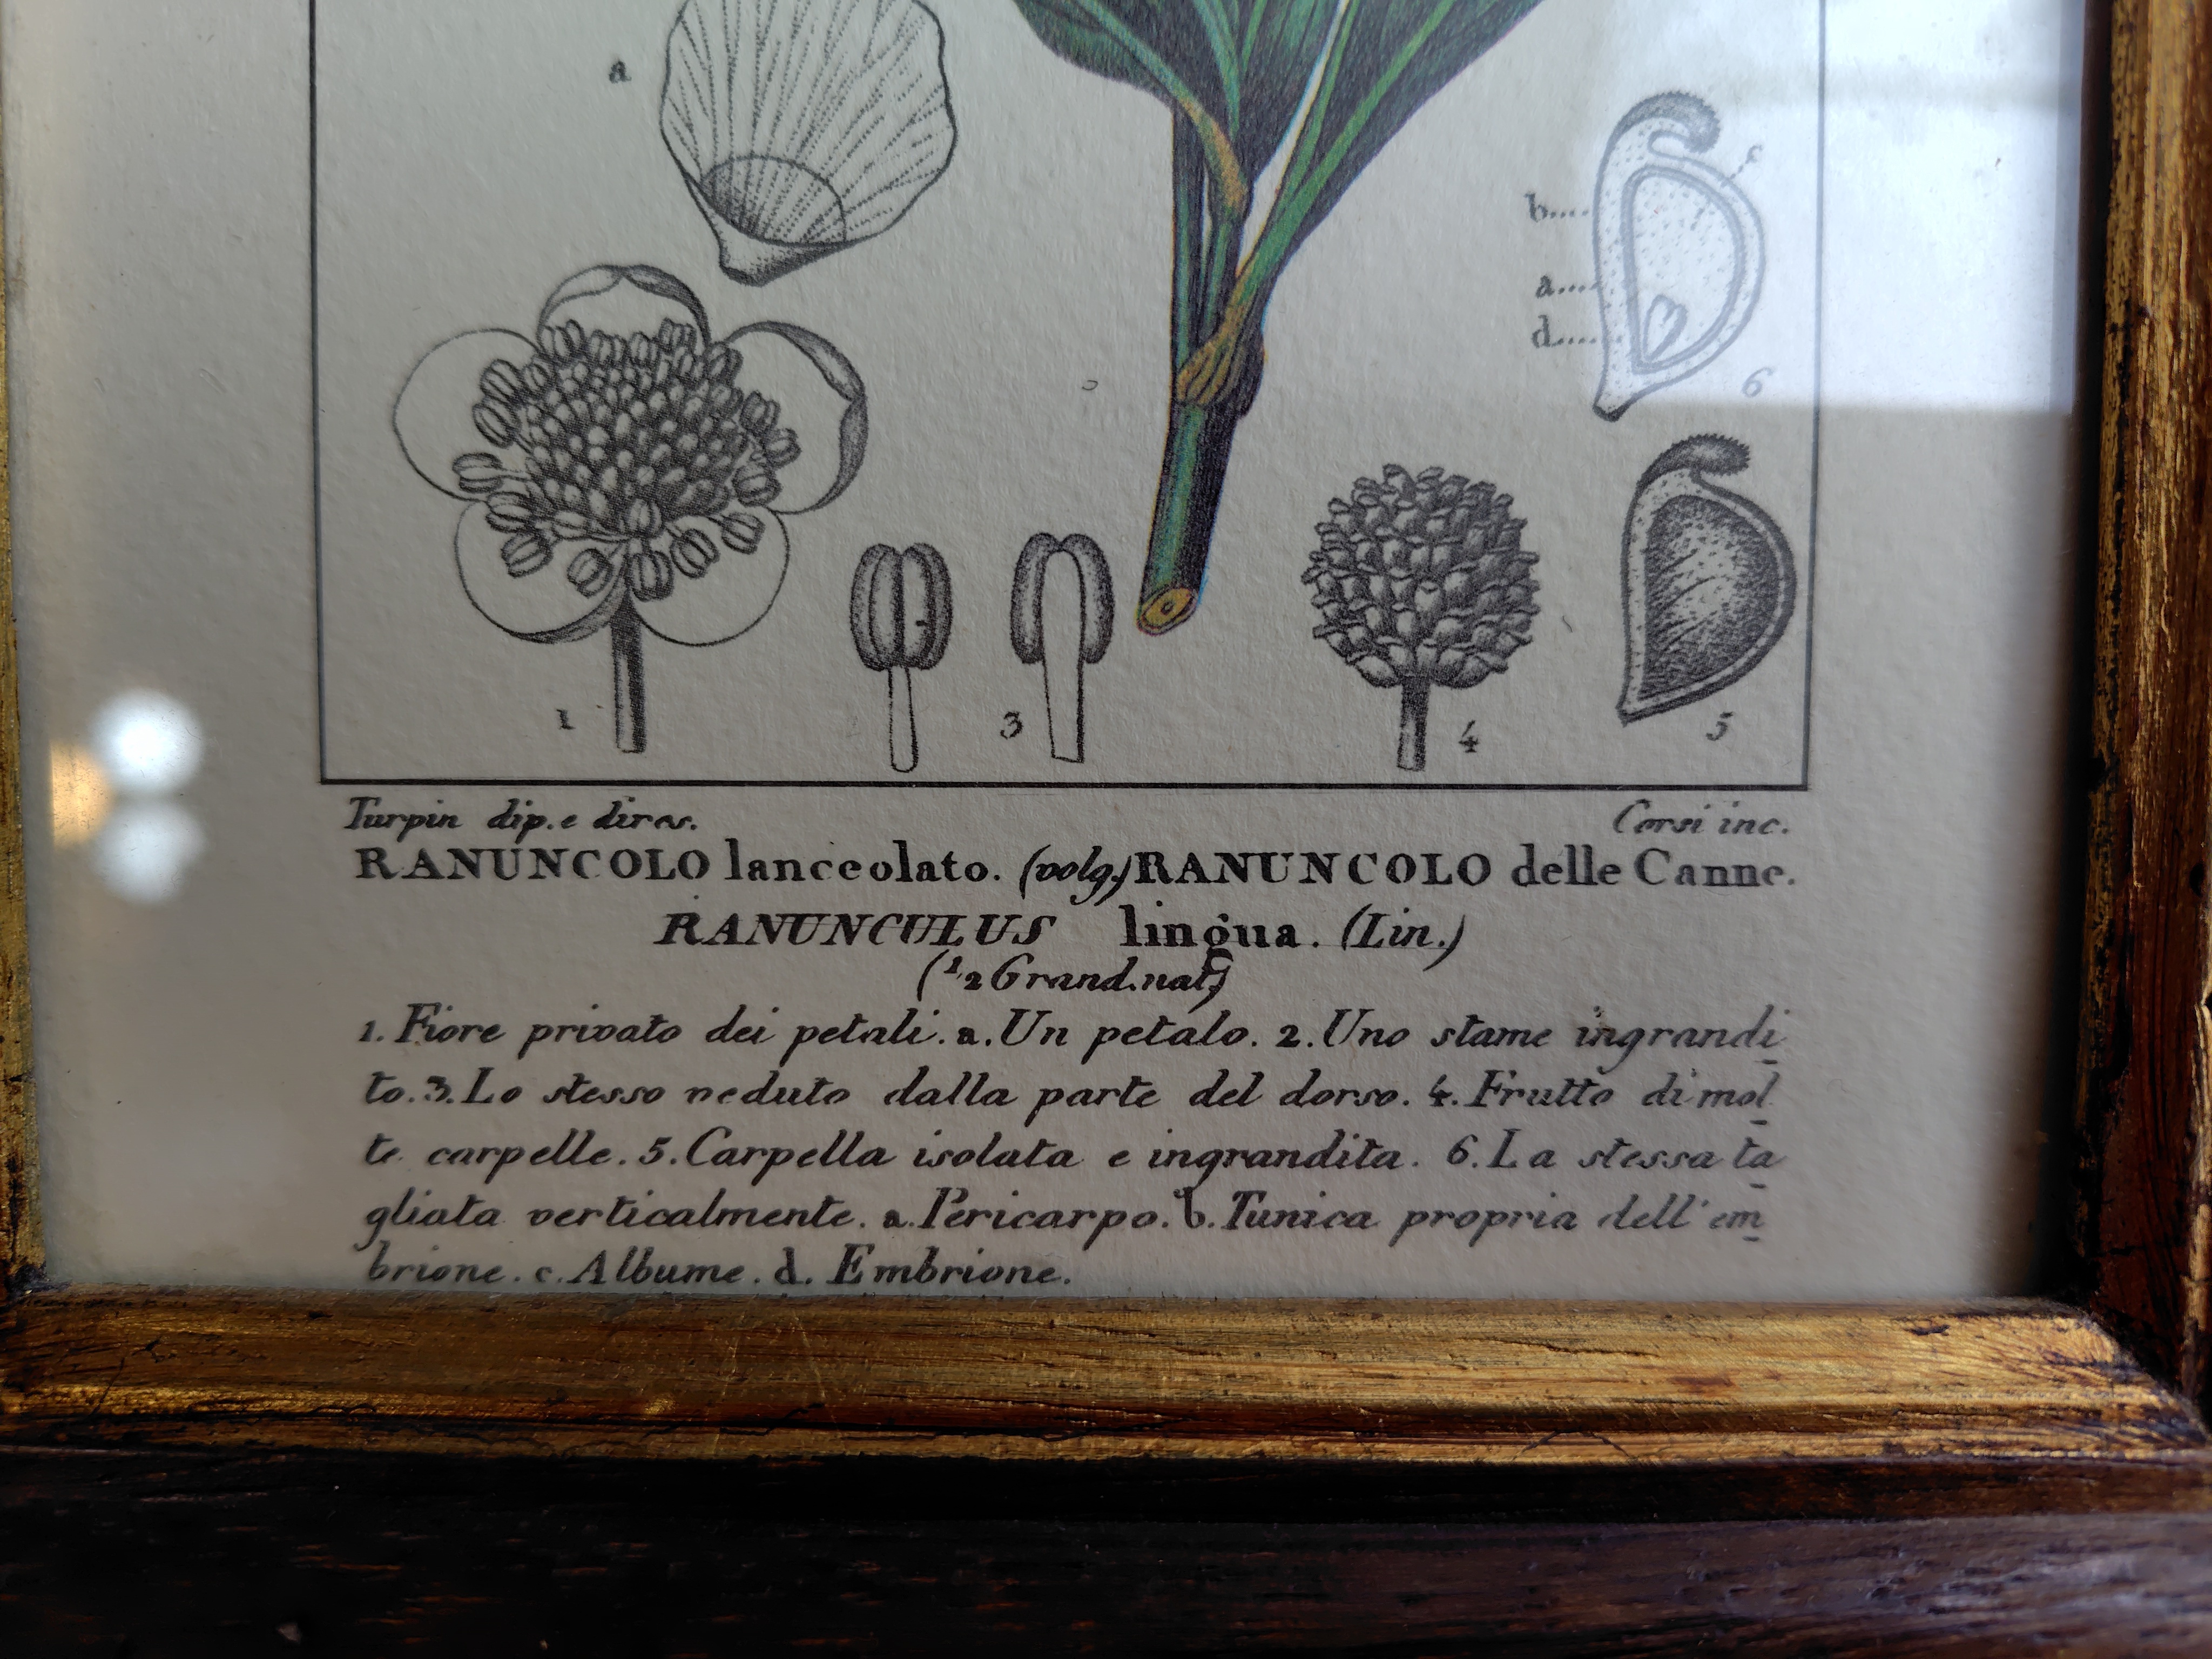 a
c
b....
a....
d....
6
1
3
4
5
Turpin dip. e dires.
Corsi inc.
RANUNCOLO lanceolato. (volg.) RANUNCOLO delle Canne.
RANUNCULUS lingua. (Lin.)
(1/2 Grand. nat.)
1. Fiore privato dei petali. a. Un petalo. 2. Uno stame ingrandi
to. 3. Lo stesso veduto dalla parte del dorso. 4. Frutto di mol
te carpelle. 5. Carpella isolata e ingrandita. 6. La stessa ta
gliata verticalmente. a. Pericarpo. b. Tunica propria dell' em
brione. c. Albume. d. Embrione.